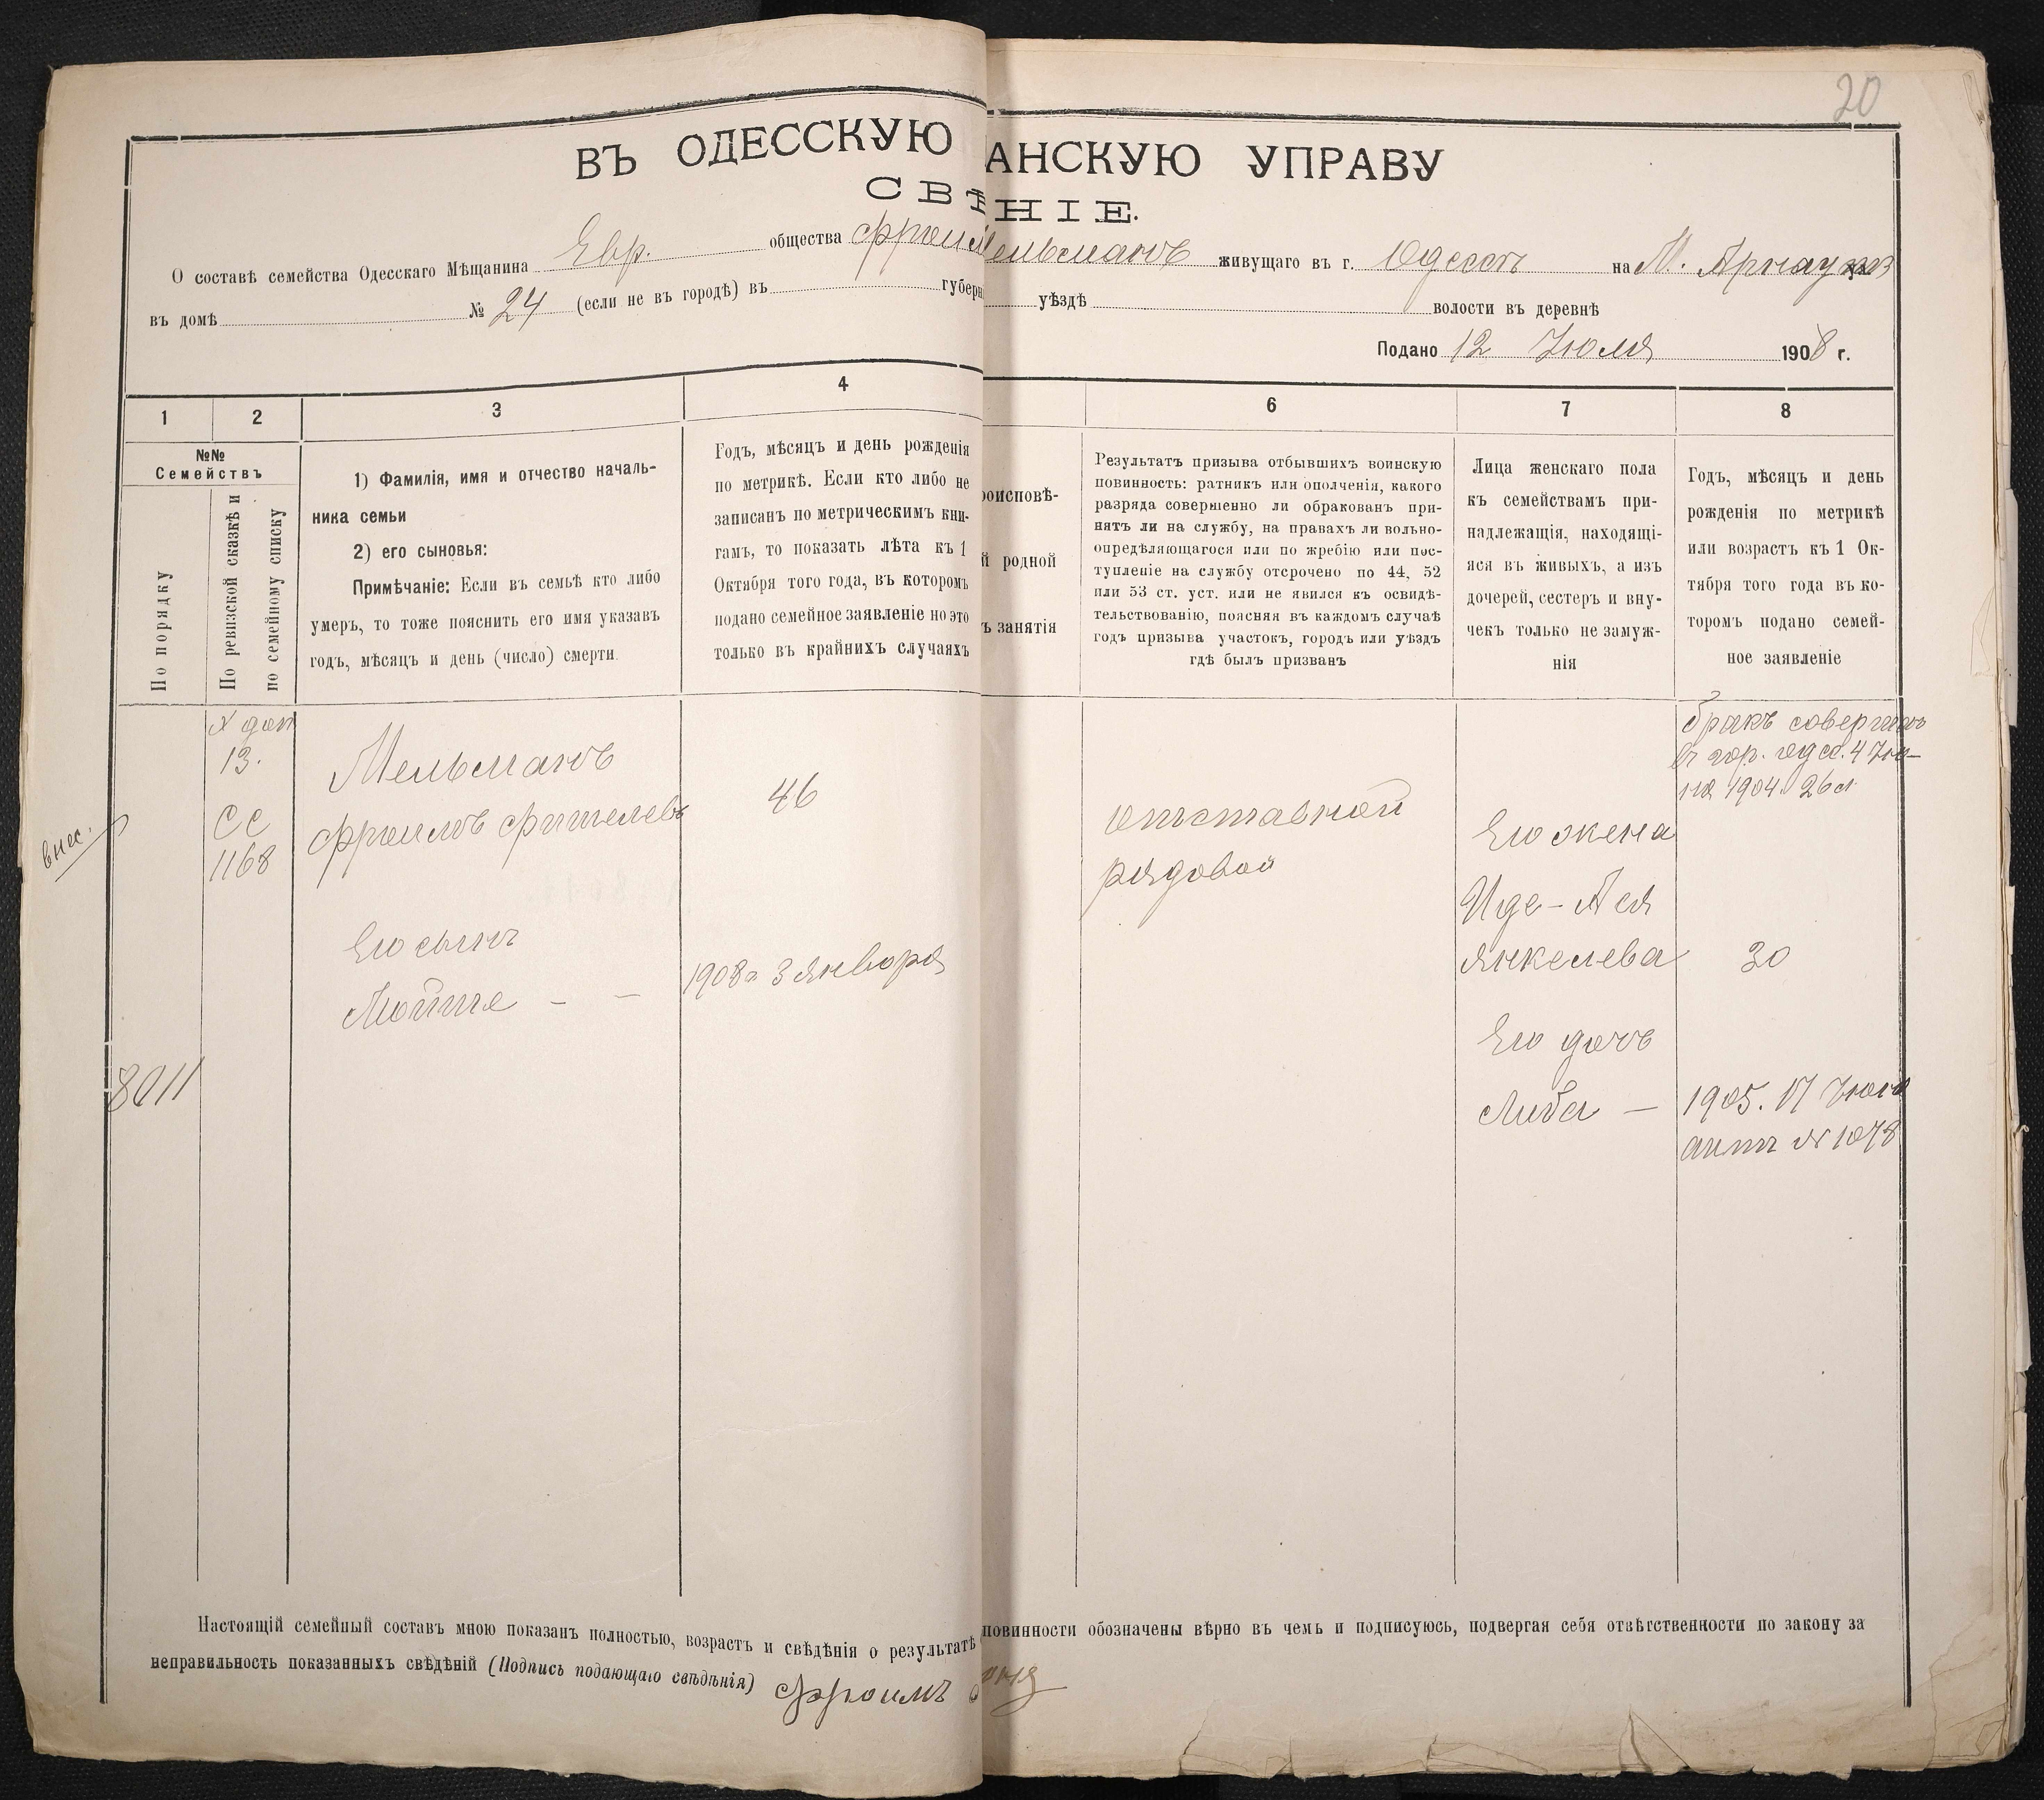 20
ВЪ ОДЕССКУЮ АНСКУЮ УПРАВУ
СВѢНІЕ.
О составѣ семейства Одесскаго Мѣщанина Евр. общества Фроим Мельманъ живущаго въ г. Одессѣ на М. Арнаут
въ домѣ № 24 (если не въ городѣ) въ губерн уѣздѣ волости въ деревнѣ
Подано 12 Июля 1908 г.
1 2 3 4 6 7 8
№№
Семействъ
По порядку
По ревизской сказкѣ и
по семейному списку
1) Фамилія, имя и отчество началь-
ника семьи
2) его сыновья:
Примѣчаніе: Если въ семьѣ кто либо
умеръ, то тоже пояснить его имя указавъ
годъ, мѣсяцъ и день (число) смерти.
Годъ, мѣсяцъ и день рожденія
по метрикѣ. Если кто либо не
записанъ по метрическимъ кни-
гамъ, то показать лѣта къ 1
Октября того года, въ которомъ
подано семейное заявленіе но это
только въ крайнихъ случаяхъ
роисповѣ-
й родной
ъ занятія
Результатъ призыва отбывшихъ воинскую
повинность: ратникъ или ополченія, какого
разряда совершенно ли обракованъ при-
нятъ ли на службу, на правахъ ли вольно-
опредѣляющагося или по жребію или пос-
тупленіе на службу отсрочено по 44, 52
или 53 ст. уст. или не явился къ освидѣ-
тельствованію, поясняя въ каждомъ случаѣ
годъ призыва участокъ, городъ или уѣздъ
гдѣ былъ призванъ
Лица женскаго пола
къ семействамъ при-
надлежащія, находящі-
яся въ живыхъ, а изъ
дочерей, сестеръ и вну-
чекъ только не замуж-
нія
Годъ, мѣсяцъ и день
рожденія по метрикѣ
или возрастъ къ 1 Ок-
тября того года въ ко-
торомъ подано семей-
ное заявленіе
внес.
8011
X доп
13.
СС
1168
Мельманъ
Фроимъ Фишелевъ
46
Его сынъ
Мойше – –
1908 г 3 января
отъставной
рядовой
Его жена
Иде-Лея
Янкелева
30
Его дочь
Либа –
бракъ совершенъ
въ гор. Одес. 4 Ию-
ня 1904. 26 л
1905. 17 Июля
актъ № 1078
Настоящій семейный составъ мною показанъ полностью, возрастъ и свѣдѣнія о результатѣ повинности обозначены вѣрно въ чемъ и подписуюсь, подвергая себя отвѣтственности по закону за
неправильность показанныхъ свѣдѣній (Подпись подающаго свѣдѣнія) Фроимъ